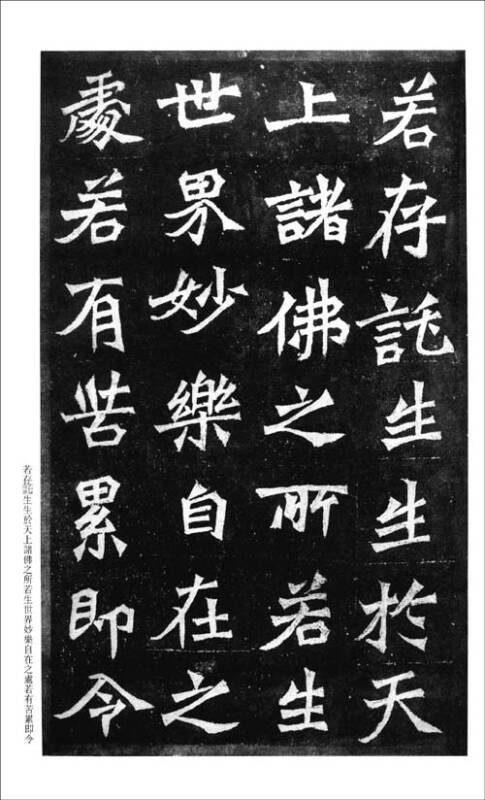 若存託生生於天
上諸佛之所若生
世界妙樂自在之
處若有苦累即令
若存託生生於天上諸佛之所若生世界妙樂自在之處若有苦累即令